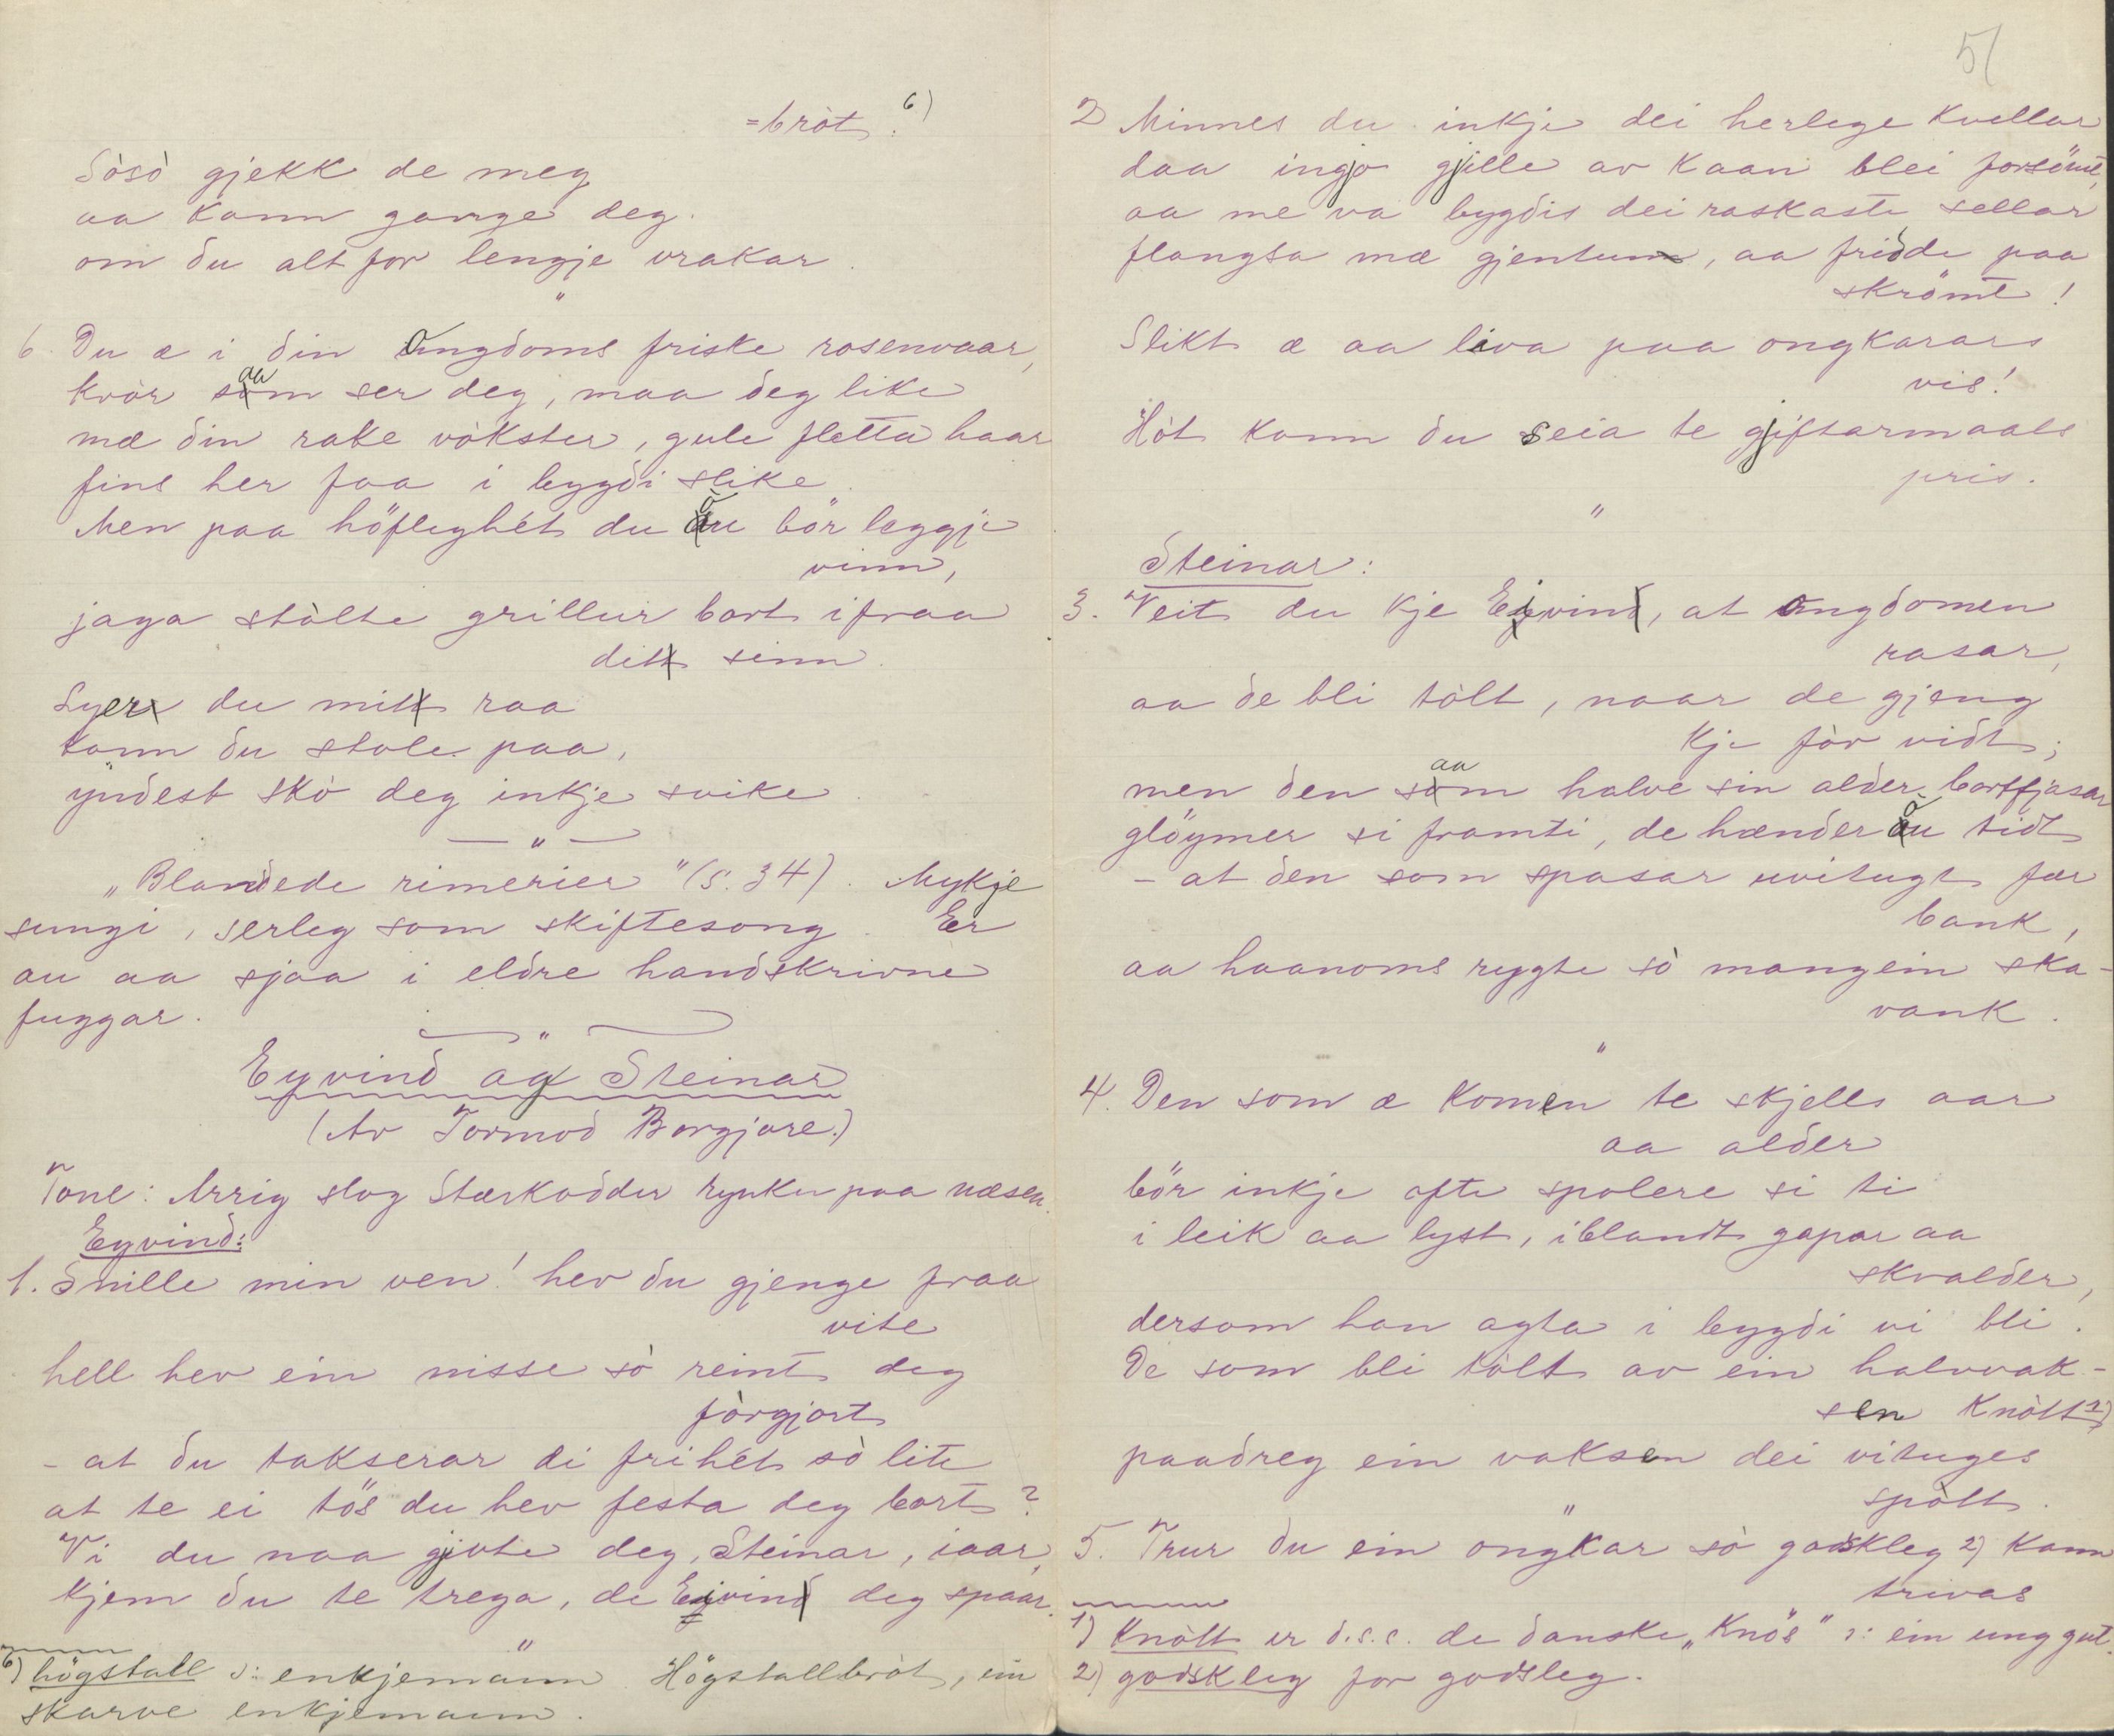 =bròt. 6)
Sòsò gjekk de meg
aa kann gange deg.
om du alt for lengje vrakar.
"
6. Du æ i din ongdoms friske rosenvaar,
kvòr saam ser deg, maa deg like
mæ din rake vòkster, gule fletta haar
fins her faa i bygdi slike.
Men paa höfleghét du òu bör leggje
vinn,
jaga stòlte grillur bort ifraa
dit sinn.
Lyer du mit raa
kann du stole paa,
yndest skò deg inkje svike.
— " —
„Blandede rimerier" (s. 34). Mykje
sungi, serleg som skiftesong. Er
au aa sjaa i eldre handskrivne
fuggar.
"
Eyvind og Steinar
(Av Tormod Borgjore.)
Tone: Arrig slog Stærkodder rynker paa næsen.
Eyvind:
1. Snille min ven! hev du gjenge fraa
vite
hell hev ein nisse sò reint deg
fòrgjort
- at du takserar di frihét sò lite
at te ei tös du hev festa deg bort?
Vi du naa gjivte deg, Steinar, iaar,
kjem du te trega, de Eivin deg spaar.
"
6) högstall ɔ: enkjemann. Högstallbròt, ein
skarve enkjemann.
51
2) Minnes du inkje dei herlege kvellar
daa ingjo gjille av kaan blei forsömt,
aa me va bygdis dei raskaste sellar
flangsa mæ gjentun, aa fridde paa
skrömt!
Slikt æ aa liva paa ongkarars
vis!
Hòt kann du seia te gjiftarmaals
pris.
"
Steinar:
3. Veit du kje Eivin, at ongdomen
rasar,
aa de bli tòlt, naar de gjeng
kje fòr vidt;
men den saam halve sin alder bortfjasar
glöymer si framti, de hænder òu tidt
- at den som spasar uvitugt fær
bank,
aa haanoms rygte sò mangein ska-
vank.
"
4. Den som æ komen te skjells aar
aa alder
bör inkje ofte spolere si ti
i leik aa lyst, iblandt gapar aa
skvalder,
dersom han agta i bygdi vi bli.
De som bli tòlt av ein halvvak-
sen knòtt 1)
paadreg ein vaksen dei vituges
spòtt.
"
5. Trur du ein ongkar sò godskleg 2) kann
trivas
1) Knòtt er d.s.s. de danske „Knös" ɔ: ein ung gut.
2) godskleg for godsleg.